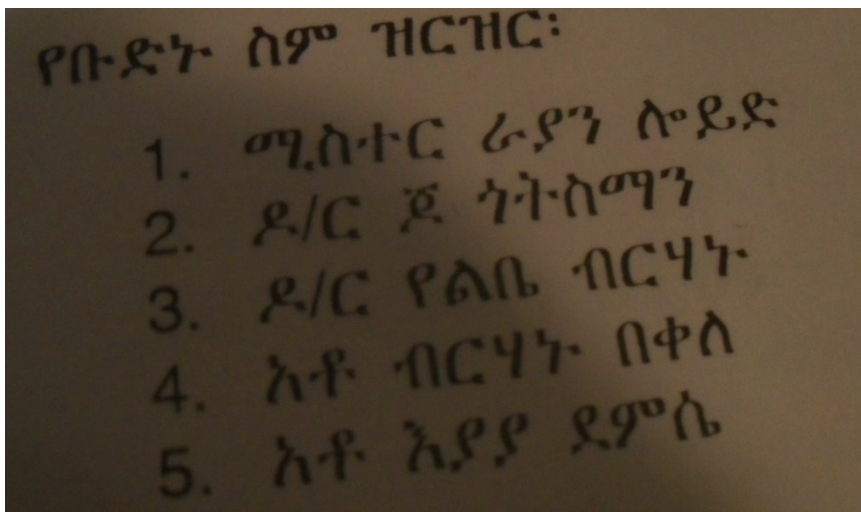 የቡድኑ ስም ዝርዝር፡
1. ሚስተር ራያን ሎይድ
2. ዶ/ር ጆ ጎትስማን
3. ዶ/ር የልቤ ብርሃኑ
4. አቶ ብርሃኑ በቀለ
5. አቶ እያያ ደምሴ